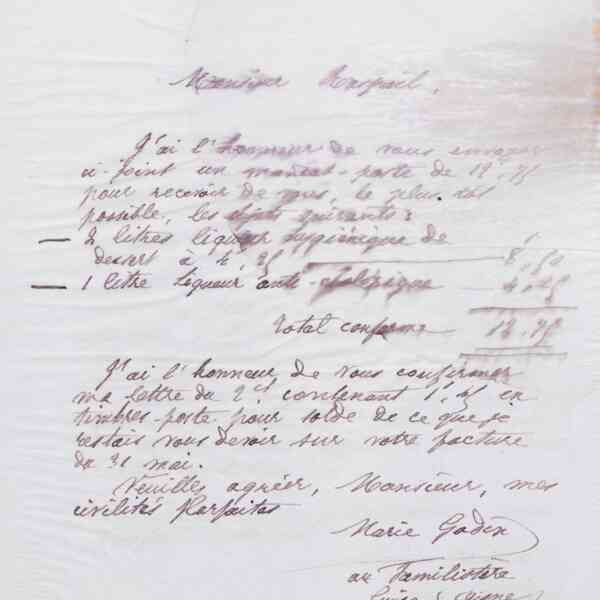 Monsieur Raspail,
J'ai l'honneur de vous envoyer
ci-joint un mandat-poste de 12f,75
pour recevoir de vous, le plus tôt
possible, les objets suivants :
— 2 litres liqueur hygiénique de
dessert à 4f,25 8,50
— 1 litre liqueur anti- 4,25
Total conforme 12,75
J'ai l'honneur de vous confirmer
ma lettre du 2 ct contenant 1f, en
timbres-poste pour solde de ce que je
restais vous devoir sur votre facture
du 31 mai.
Veuillez agréer, Monsieur, mes
civilités parfaites
Marie Godin
au Familistère
Guise Aisne